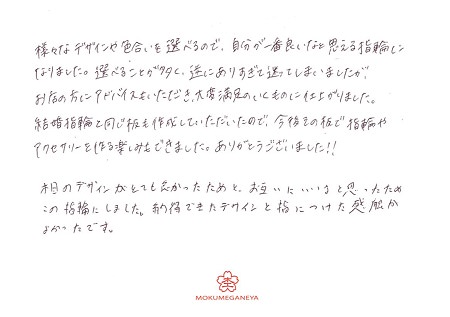 様々なデザインや色合いを選べるので、自分が一番良いなと思える指輪に
なりました。選べることが多く、逆にありすぎて迷ってしまいましたが、
お店の方にアドバイスをいただき、大変満足のいくものに仕上がりました。
結婚指輪と同じ板も作成していただいたので、今後その板で指輪や
アクセサリーを作る楽しみもできました。ありがとうございました!!
木目のデザインがとてもよかったためと、お互いにいいなと思ったため
この指輪にしました。納得できたデザインと指につけた感触が
よかったです。
MOKUMEGANEYA